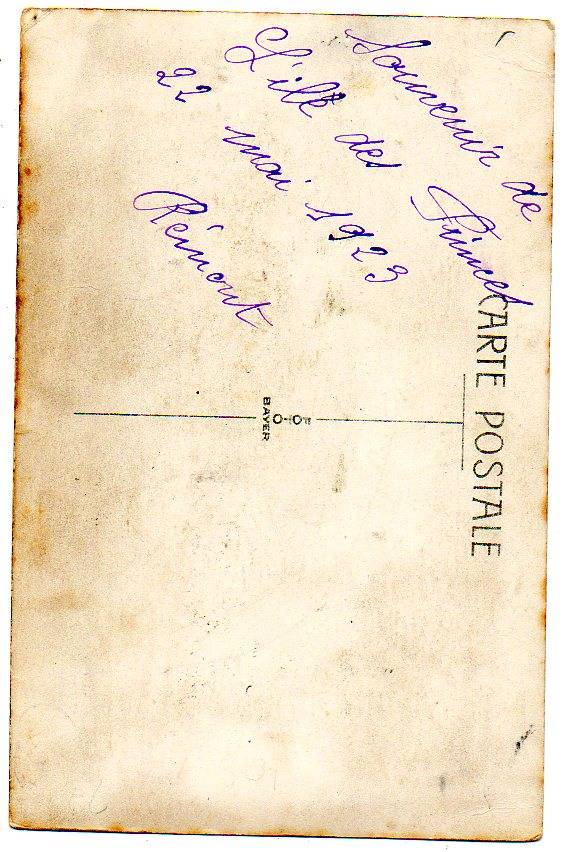 Souvenir de
L'ile des Princes
22 mai 1923
CARTE POSTALE
BAYER